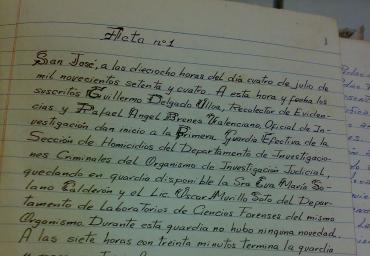 Acta nº1
1
San José, a las dieciocho horas del día cuatro de julio de
mil novecientos setenta y cuatro. A esta hora y fecha los
suscritos Guillermo Delgado Ulloa, Recolector de Eviden-
cias y Rafael Angel Brenes Valenciano, Oficial de In-
vestigación dan inicio a la Primera Guardia Efectiva de la
Sección de Homicidios del Departamento de Investigacio-
nes Criminales del Organismo de Investigación Judicial,
quedando en guardia disponible la Sra Eva María So-
lano Calderón y el Lic. Oscar Murillo Soto del Depar-
tamento de Laboratorios de Ciencias Forenses del mismo
Organismo. Durante esta guardia no hubo ninguna novedad.
A las siete horas con treinta minutos termina la guardia